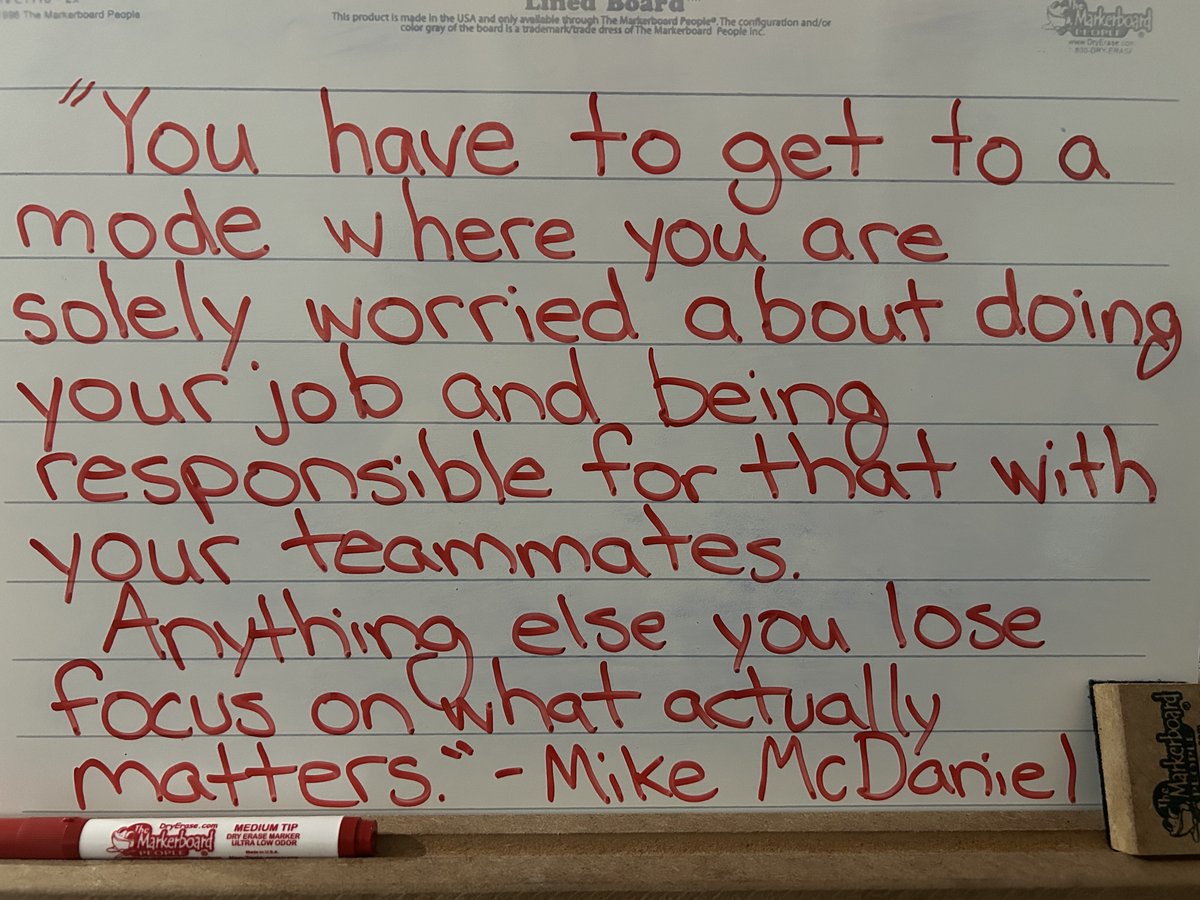 1996 The Markerboard People
Lined Board
This product is made in the USA and only available through The Markerboard People®. The configuration and/or
color gray of the board is a trademark/trade dress of The Markerboard People Inc.
The Markerboard
PEOPLE
www.DryErase.com
800-DRY-ERASE
"You have to get to a
mode where you are
solely worried about doing
your job and being
responsible for that with
your teammates.
Anything else you lose
focus on what actually
matters." - Mike McDaniel
DryErase.com
The Markerboard
PEOPLE
MEDIUM TIP
DRY ERASE MARKER
ULTRA LOW ODOR
Made in U.S.A.
The Markerboard